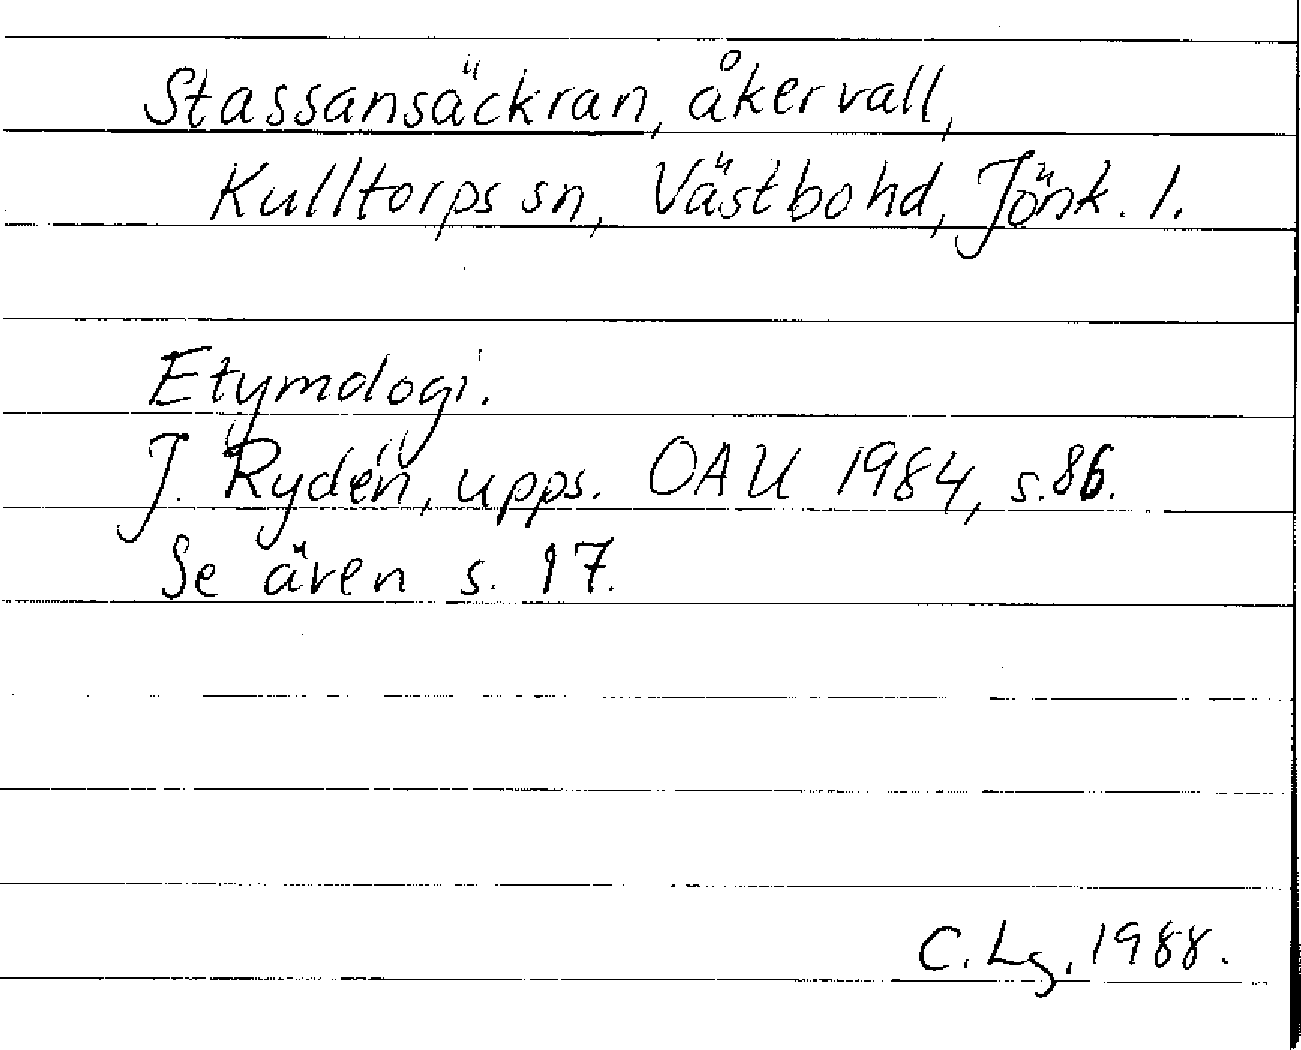 Stassansäckran, åkervall,
Kulltorps sn, Västbo hd, Jönk. l.
Etymologi.
J. Rydén, upps. OAU 1984, s. 86.
Se även s. 17.
C. Lg. 1988.